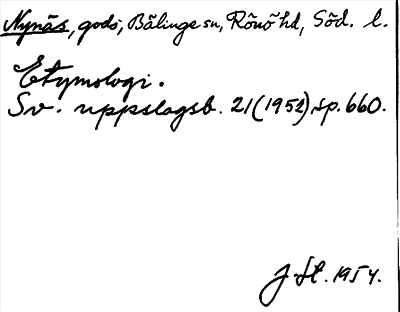 Nynäs, gods, Bälinge sn, Rönö hd, Söd. l.
Etymologi.
Sv. uppslagsb. 21(1952), sp. 660.
J. St. 1954.